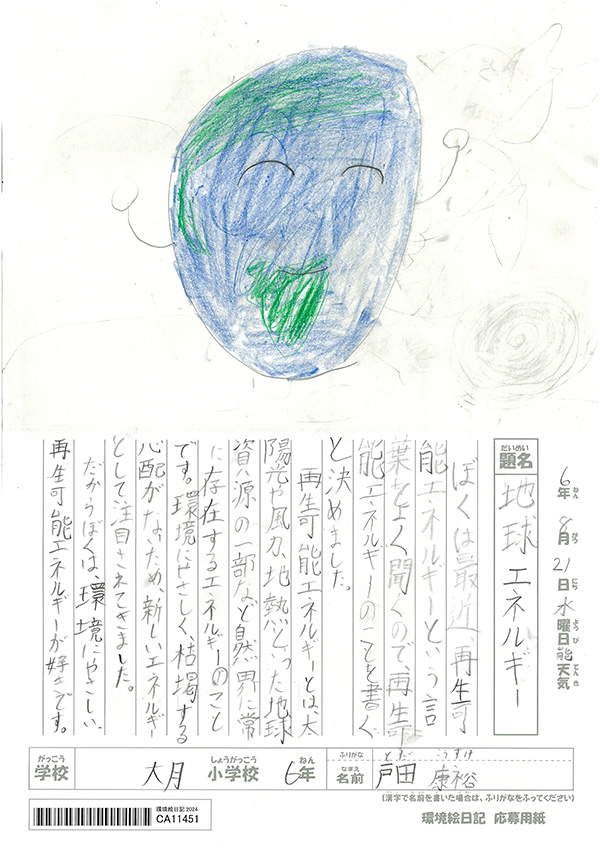 6年 8月 21日 水曜日 天気
ねん がつ にち ようび てんき
だいめい
題名 地球エネルギー
ぼくは最近、再生可
能エネルギーという言
葉をよく聞くので、再生可
能エネルギーのことを書く
と決めました。
再生可能エネルギーとは、太
陽光や風力、地熱といった地球
資源の一部など自然界に常
に存在するエネルギーのこと
です。環境にやさしく、枯渇する
心配がないため、新しいエネルギー
として注目されてきました。
だからぼくは、環境にやさしい、
再生可能エネルギーが好きです。
がっこう しょうがっこう ねん ふりがな とだ こうすけ
学校 大月 小学校 6年 なまえ 名前 戸田 康裕
(漢字で名前を書いた場合は、ふりがなをふってください)
環境絵日記2024
CA11451
環境絵日記 応募用紙